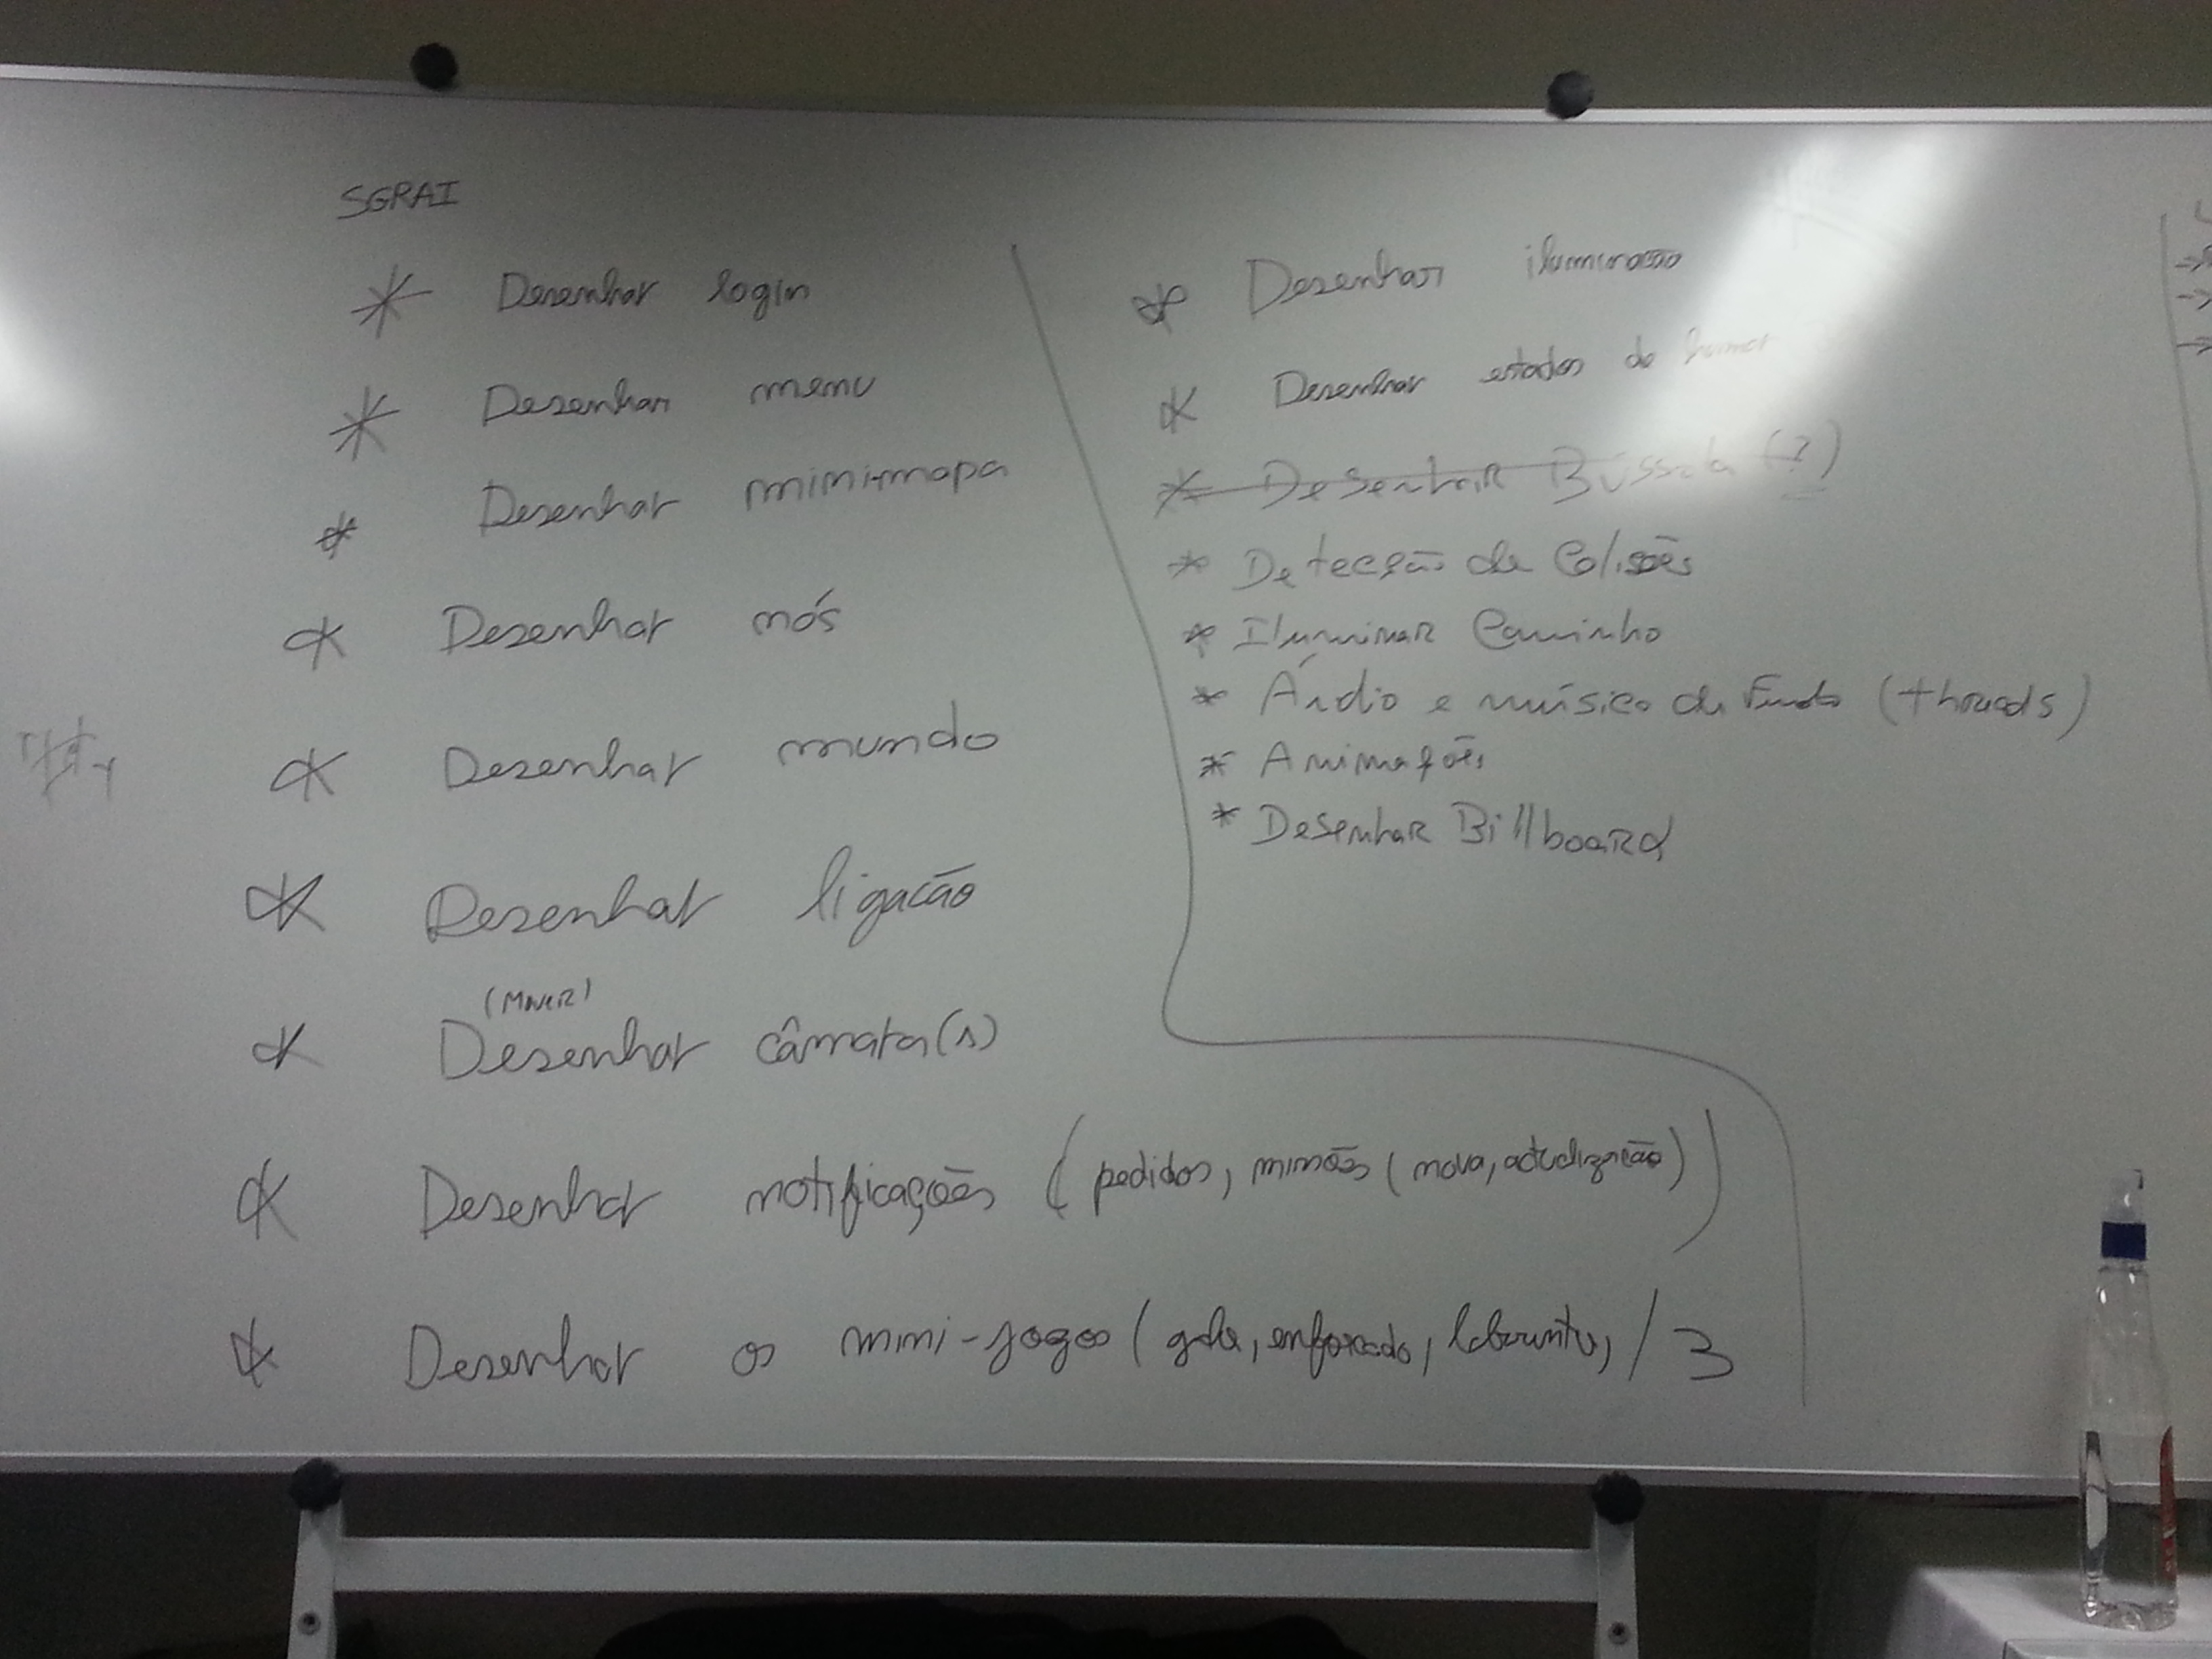 SGRAI
* Desenhar login
* Desenhar menu
* Desenhar minimapa
* Desenhar nós
* Desenhar mundo
* Desenhar ligação
* Desenhar câmara(s)
* Desenhar notificações (pedidos, missões (nova, actualização))
* Desenhar os mini-jogos ( galo, enforcado, labirinto, / 3
* Desenhar iluminação
* Desenhar estados de humor
* Desenhar Bússola (?)
* Detecção de Colisões
* Iluminar Caminho
* Áudio e música de Fundo (threads)
* Animações
* Desenhar Billboard